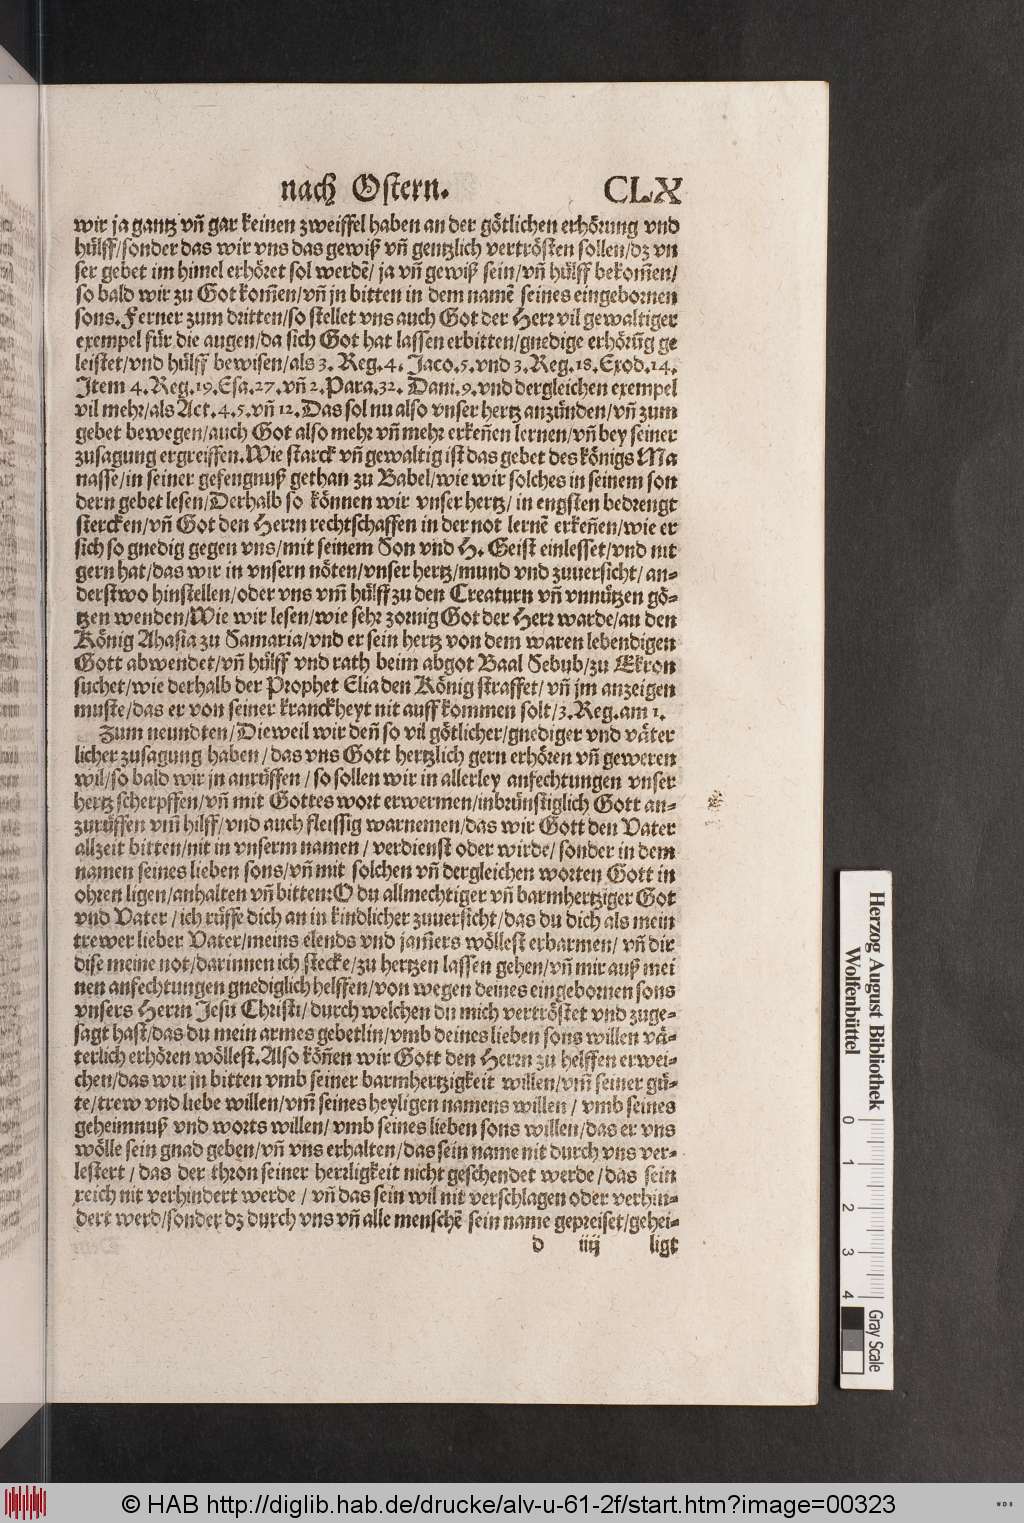 nach Ostern. CLX
wir ja gantz vñ gar keinen zweiffel haben an der götlichen erhörung vnd
hülff/sonder das wir vns das gewiß vñ gentzlich vertrösten sollen/dz vn
ser gebet im himel erhöret sol werdẽ/ ja vñ gewiß sein/vñ hülff bekom̃en/
so bald wir zu Got kom̃en/vñ jn bitten in dem namẽ seines eingebornen
sons. Ferner zum dritten/so stellet vns auch Got der Herr vil gewaltiger
exempel für die augen/da sich Got hat lassen erbitten/gnedige erhörũg ge
leistet/vnd hülff bewisen/als 3. Reg. 4. Jaco. 5. vnd 3. Reg. 18. Exod. 14.
Item 4. Reg. 19. Esa. 27. vñ 2. Para. 32. Dani. 9. vnd dergleichen exempel
vil mehr/als Act. 4. 5. vñ 12. Das sol nu also vnser hertz anzünden/vñ zum
gebet bewegen/auch Got also mehr vñ mehr erkeñen lernen/vñ bey seiner
zusagung ergreiffen. Wie starck vñ gewaltig ist das gebet des königs Ma
nasse/in seiner gefengnuß gethan zu Babel/wie wir solches in seinem son
dern gebet lesen/Derhalb so können wir vnser hertz/ in engsten bedrengt
stercken/vñ Got den Herrn rechtschaffen in der not lernẽ erkeñen/wie er
sich so gnedig gegen vns/mit seinem Son vnd H. Geist einlesset/vnd nit
gern hat/das wir in vnsern nöten/vnser hertz/mund vnd zuuersicht/ an-
derstwo hinstellen/oder vns vm̃ hülff zu den Creaturn vñ vnnützen gö-
tzen wenden/Wie wir lesen/wie sehr zornig Got der Herr warde/an den
König Ahasia zu Samaria/vnd er sein hertz von dem waren lebendigen
Gott abwendet/vñ hülff vnd rath beim abgot Baal Sebub/zu Ekron
suchet/wie derhalb der Prophet Elia den König straffet/ vñ jm anzeigen
muste/das er von seiner kranckheyt nit auff kommen solt/3. Reg. am 1.
Zum neundten/Dieweil wir deñ so vil götlicher/gnediger vnd väter
licher zusagung haben/das vns Gott hertzlich gern erhören vñ geweren
wil/so bald wir jn anrüffen/so sollen wir in allerley anfechtungen vnser
hertz scherpffen/vñ mit Gottes wort erwermen/inbrünstiglich Gott an-
zurüffen vm̃ hilff/vnd auch fleissig warnemen/das wir Gott den Vater
allzeit bitten/nit in vnserm namen/ verdienst oder wirde/ sonder in dem
namen seines lieben sons/vñ mit solchen vñ dergleichen worten Gott in
ohren ligen/anhalten vñ bitten: O du allmechtiger vñ barmhertziger Got
vnd Vater/ich rüffe dich an in kindlicher zuuersicht/das du dich als mein
trewer lieber Vater/meins elends vnd jam̃ers wöllest erbarmen/ vñ dir
dise meine not/darinnen ich stecke/zu hertzen lassen gehen/vñ mir auß mei
nen anfechtungen gnediglich helffen/von wegen deines eingebornen sons
vnsers Herrn Jesu Christi/durch welchen du mich vertröstet vnd zuge-
sagt hast/das du mein armes gebetlin/vmb deines lieben sons willen vä-
terlich erhören wöllest. Also köñen wir Gott den Herrn zu helffen erwei-
chen/das wir jn bitten vmb seiner barmhertzigkeit willen/vm̃ seiner gü-
te/trew vnd liebe willen/vm̃ seines heyligen namens willen / vmb seines
geheimnuß vnd worts willen/ vmb seines lieben sons willen/das er vns
wölle sein gnad geben/vñ vns erhalten/das sein name nit durch vns ver-
lestert / das der thron seiner herrligkeit nicht geschendet werde/das sein
reich nit verhindert werde / vñ das sein wil nit verschlagen oder verhin-
dert werd/sonder dz durch vns vñ alle menschẽ sein name gepreiset/gehei-
d iiij ligt
Herzog August Bibliothek
Wolfenbüttel
0 1 2 3 4
Gray Scale
© HAB http://diglib.hab.de/drucke/alv-u-61-2f/start.htm?image=00323